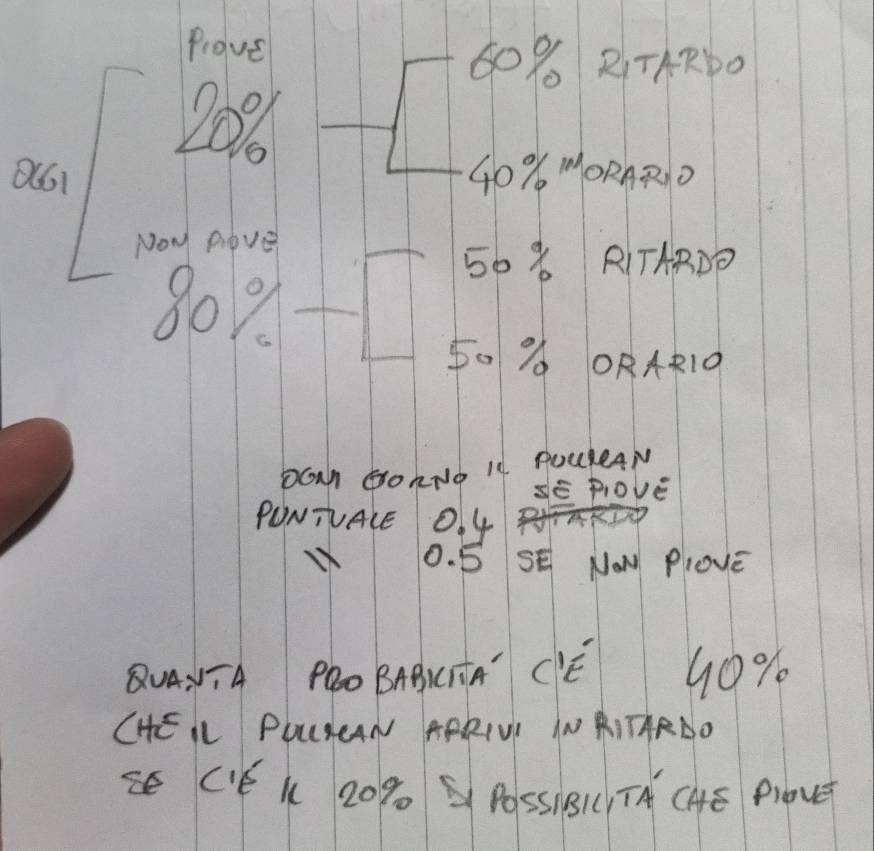 PIOVE
20%
60% RITARDO
40% IN ORARIO
OGGI
NON PIOVE
80%
50% RITARDO
50% ORARIO
OGNI GIORNO IL PULLMAN
SE PIOVE
PUNTUALE 0.4 RITARDO
" 0.5 SE NON PIOVE
QUANTA PROBABILITÀ C'É 40%
CHE IL PULLMAN ARRIVI IN RITARDO
SE C'É IL 20% DI POSSIBILITÀ CHE PIOVE